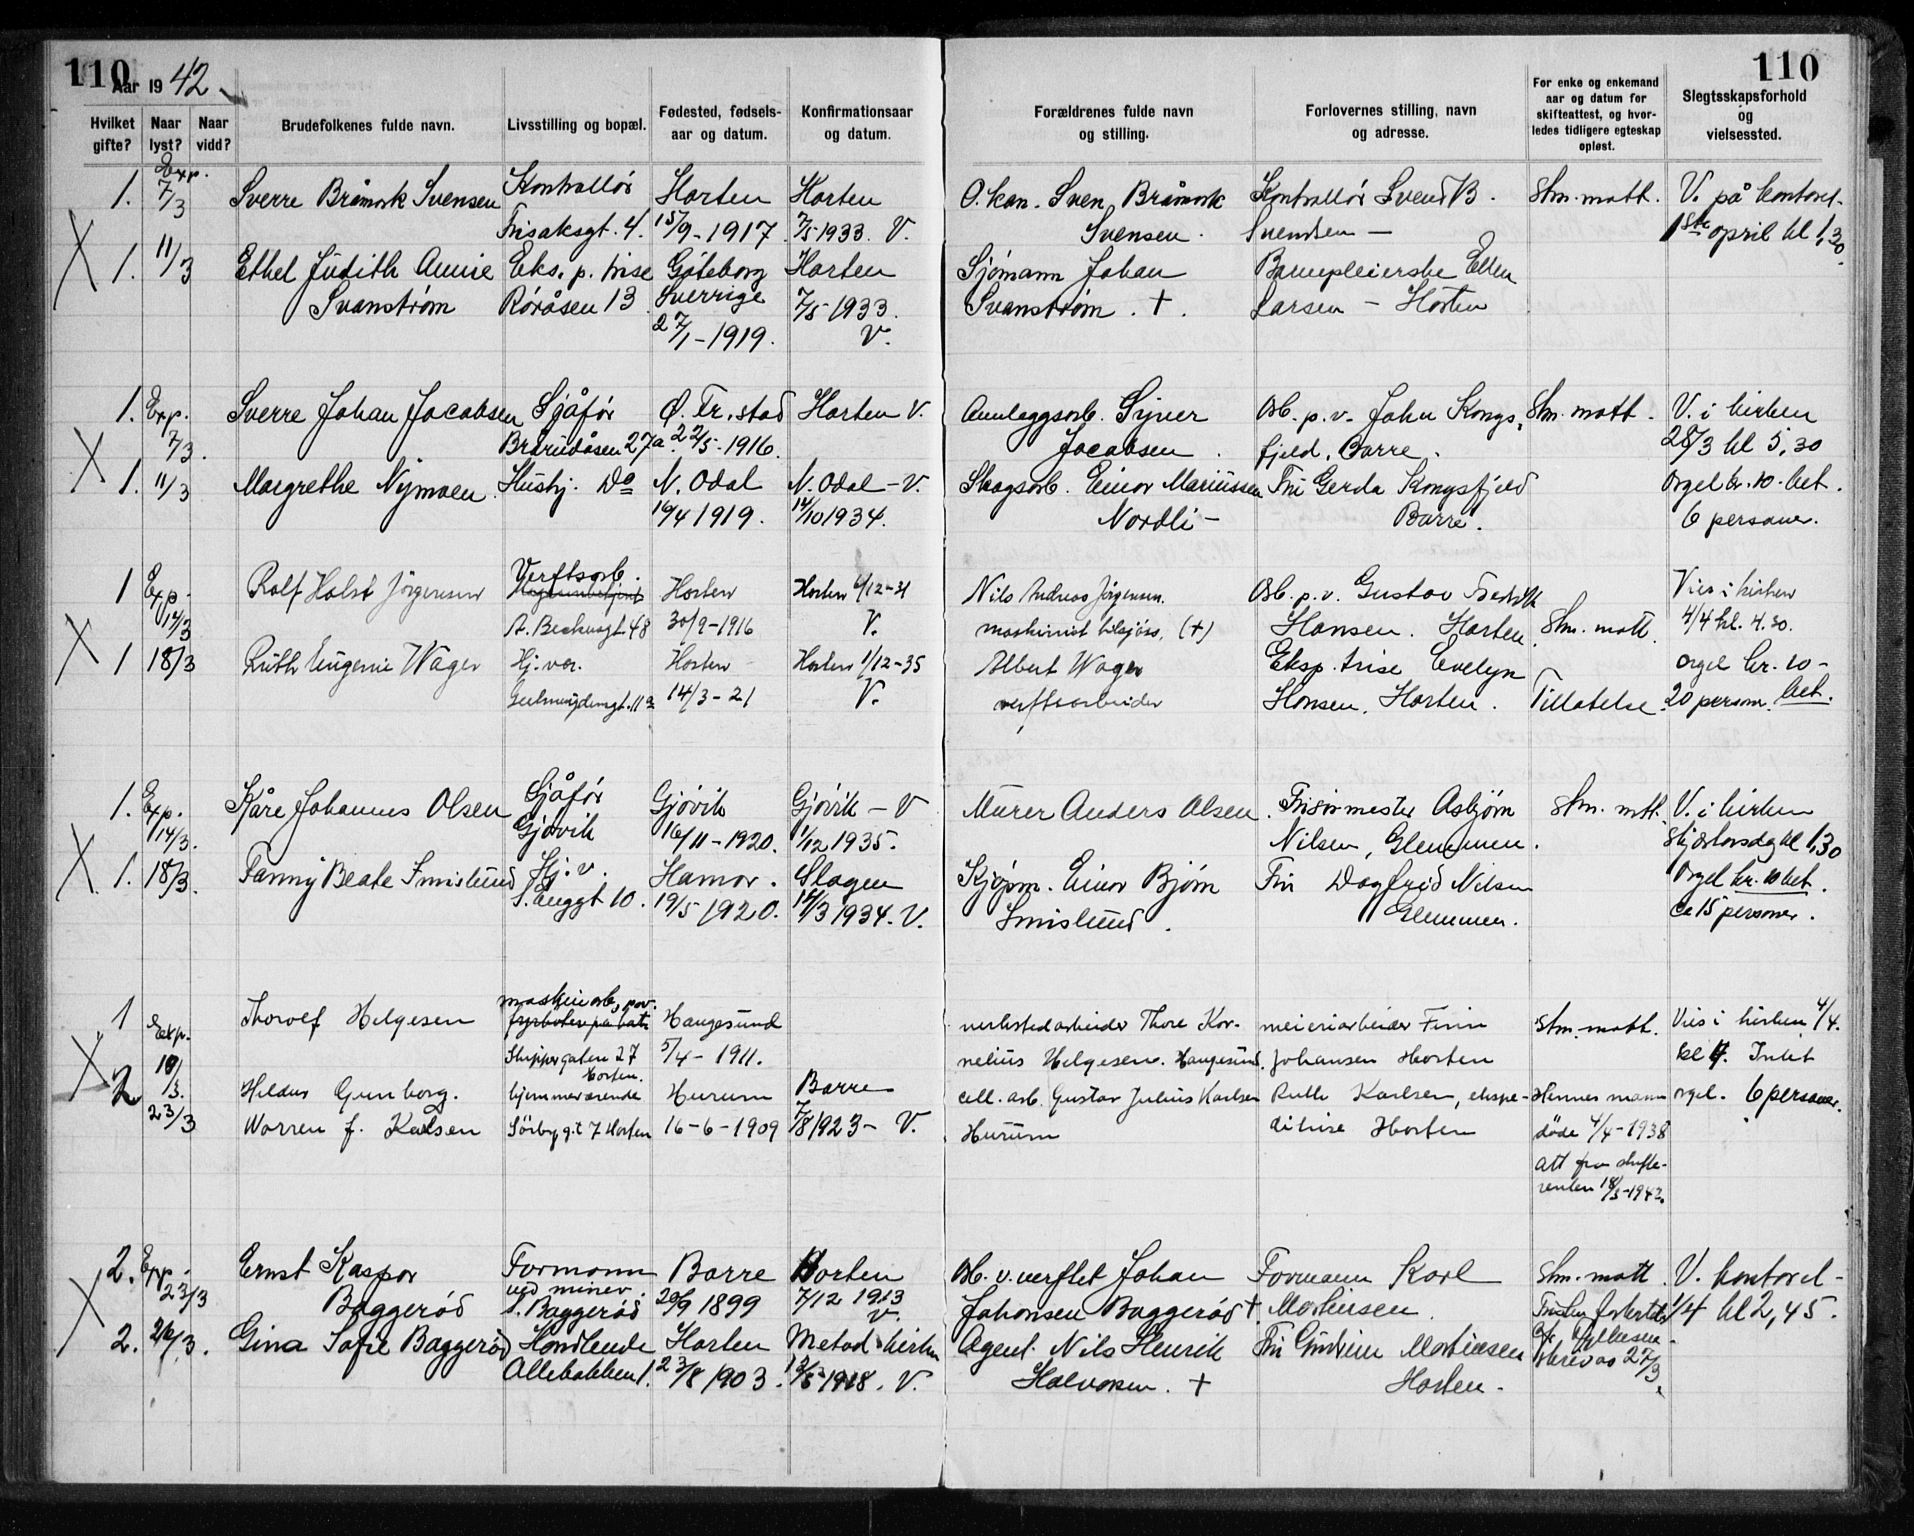 110 Aar 1942
110
Hvilket gifte?
Naar lyst?
Naar vidd?
Brudefolkenes fulde navn.
Livsstilling og bopæl.
Fødested, fødsels-aar og datum.
Konfirmationsaar og datum.
Forældrenes fulde navn og stilling.
Forlovernes stilling, navn og adresse.
For enke og enkemand aar og datum for skifteattest, og hvorledes tidligere egteskap opløst.
Slegtsskapsforhold og vielsessted.
Exp.
1. 7/3 Sverre Bråmork Svensen Kontrollør Horten Horten O. kan. Sven Bråmork Kontrollør Svend B. Stm. matt. V. på kontoret.
Frisaksgt. 4. 15/9-1917. 7/5 1933. V. Svensen. Svendsen — 1ste april kl 1,30.
1. 11/3 Ethel Judith Annie Eks. p. trise Göteborg Horten Sjømann Johan Barnepleierske Ellen
Svanstrøm Røråsen 13 Sverrige 7/5 1933. Svanstrøm. + . Larsen — Horten
27/1-1919. V.
1. Exp. Sverre Johan Jacobsen Sjåfør Ø. Fr.stad Horten V. Anleggsarb. Syver Arb. p. v. John Kongs- Stm. matt. V. i kirken
7/3. Brårudåsen 27a. 22/5-1916. Jacobsen. fjeld, Borre. 28/3 kl 5,30
1. 11/3 Margrethe Nymoen. Hushj. Do N. Odal N. Odal - V. Skogsarb. Einar Mariussen Fru Gerda Kongsfjeld Orgel kr. 10. bet.
19/4 1919. 14/10 1934. Nordli — Borre. 6 personer.
1 Exp. Rolf Holst Jörgensen Verftsarb. Horten Horten 6/12-31 Nils Andreas Jörgensen. Arb. p. v. Gustav Fredrik Vies i kirken
14/3 A. Beckesgt. 48 30/9-1916 V. maskinist tilsjöss, (+) Hansen. Horten. Stm. matt. 4/4 kl. 4.30.
1 18/3 Ruth Eugenie Wager Hj. vær. Horten Horten 1/12-35 Albert Wager Eksp. trise Evelyn orgel kr. 10 -
14/3-21 V. verftsarbeider Hansen, Horten. Tillatelse. 20 person. bet.
1. Exp. Kåre Johannes Olsen Sjåfør Gjøvik Gjøvik - V Murer Anders Olsen. Frisørmester Asbjørn Stm. matt. V. i kirken
14/3. Gjøvik 16/11-1920. 1/12 1935. Nilsen, Glemmen. Skjærtorsdag kl 1,30
1. 18/3. Fanny Beate Smislund Hj. v. Hamar. Slagen Kjøpm. Einar Bjørn Fru Dagfrid Nilsen Orgel kr. 10 bet.
S. Langgt 10. 19/5 1920. 18/3 1934. V. Smislund. Glemmen. Ca 15 personer.
1 Exp. Thorolf Helgesen maskinarb, pav. Haugesund verkstedarbeider Thore Kor- meieriarbeider Finn Stm. matt. Vies i kirken 4/4.
19/3. fyrbøter på båt Skippergaten 27 Horten. 5/4-1911. nelius Helgesen. Haugesund. Johansen Horten kl 7. Intet
2 Hildur Gunborg. hjemmeværende Hurum Borre cell. arb. Gustav Julius Karlsen Ruth Karlsen, ekspe- Hennes mann orgel. 6 personer.
23/3 Warren f. Karlsen Sörbygt 7 Horten 16-6-1909 7/8 1923 - V. Hurum ditrise Horten döde 4/4-1938
att fra skifte-
retten 18/3-1942.
2. Exp. Ernst Kaspar Formann Borre Horten Arb. v. verftet Johan Formann Karl Stm. matt. V. kontoret -
23/3 Baggerød ved miner. s. Baggerød 20/9 1899 7/12 1913 V. Johansen Baggerød +. Martinsen. 1/4 kl 2,45.
2. 26/3. Gina Sofie Baggerød Handlende Horten Metod. kirken Agent Nils Henrik Fru Gudrun Martinsen
Allebakken 1. 23/8 1903. 12/5 1918. V. Halvorsen. + Horten. 27/3.